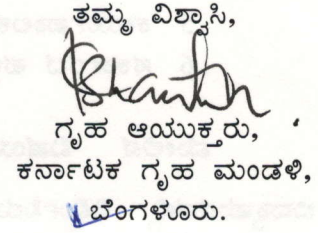 ತಮ್ಮ ವಿಶ್ವಾಸಿ,
ಗೃಹ ಆಯುಕ್ತರು,
ಕರ್ನಾಟಕ ಗೃಹ ಮಂಡಳಿ,
ಬೆಂಗಳೂರು.